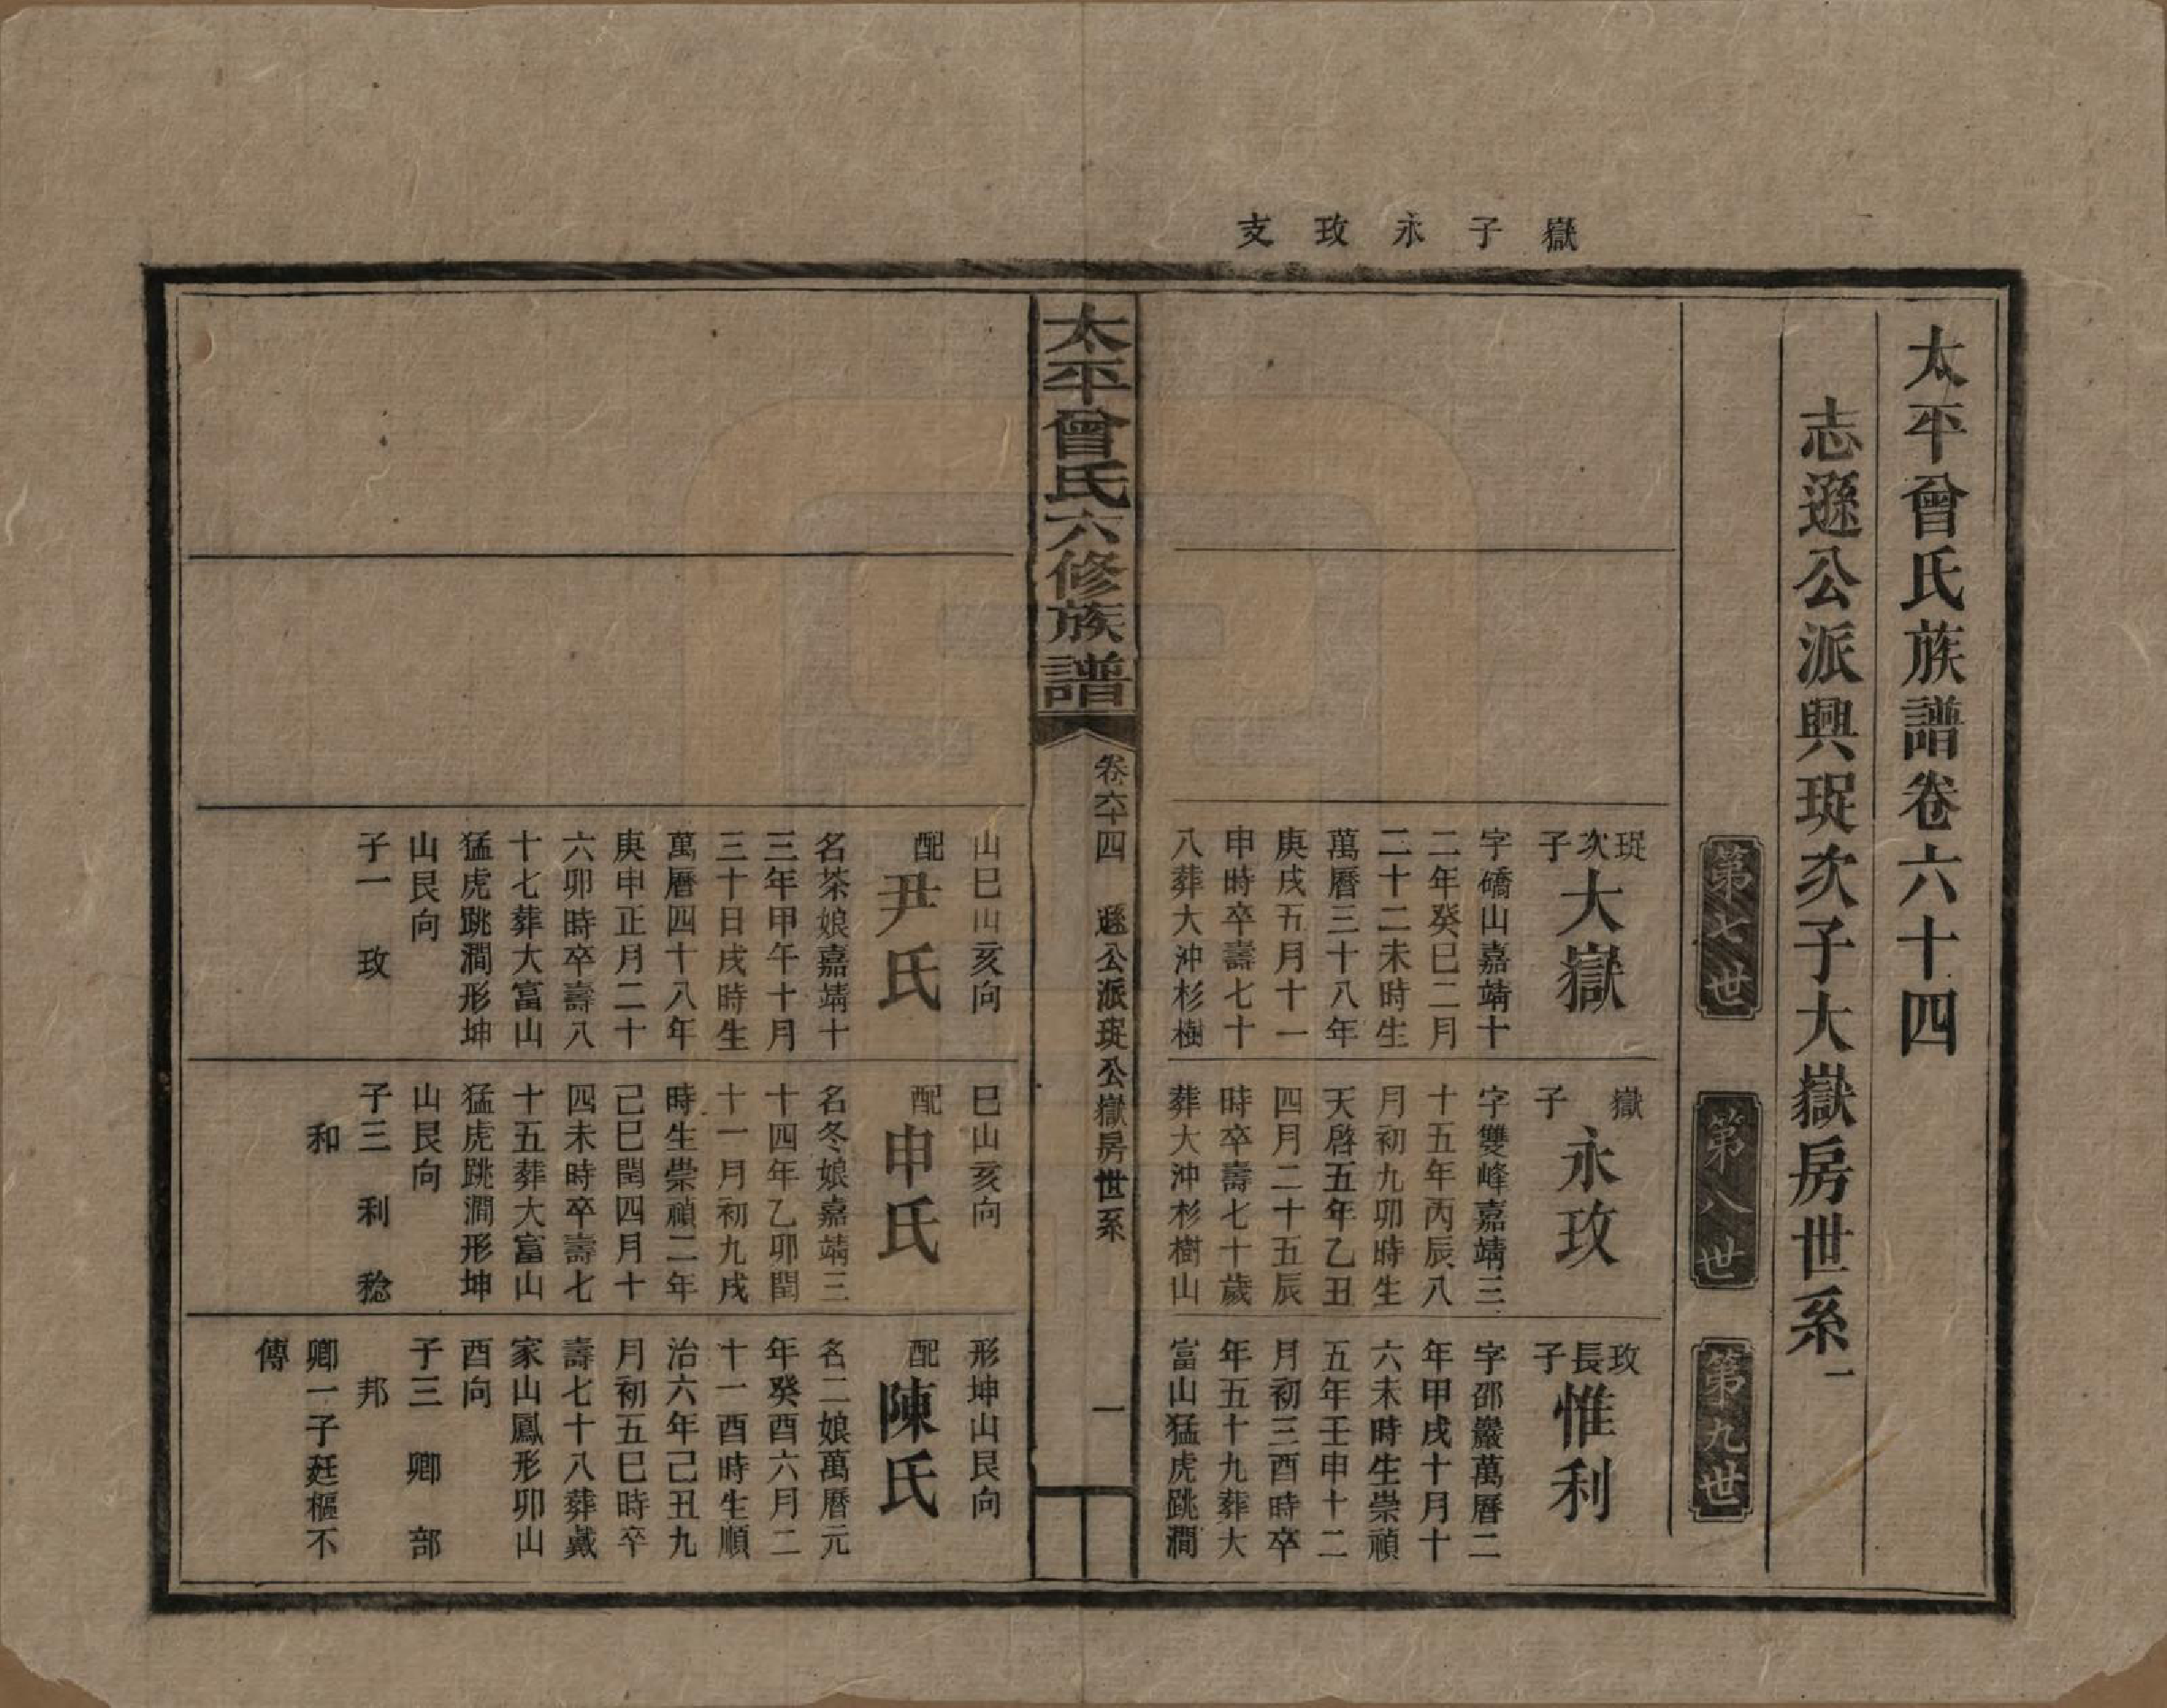 嶽子永攻支
太平曾氏族譜卷六十四
志遜公派興珽次子大嶽房世系一
第七世
第八世
第九世
珽次子
大嶽
字礄山嘉靖十
二年癸巳二月
二十二未時生
萬曆三十八年
庚戌五月十一
申時卒壽七十
八葬大沖杉樹
山巳山亥向
配
尹氏
名茶娘嘉靖十
三年甲午十月
三十日戌時生
萬曆四十八年
庚申正月二十
六卯時卒壽八
十七葬大富山
猛虎跳澗形坤
山艮向
子一 攻
嶽子
永攻
字雙峰嘉靖三
十五年丙辰八
月初九卯時生
天啓五年乙丑
四月二十五辰
時卒壽七十歲
葬大沖杉樹山
巳山亥向
配
申氏
名冬娘嘉靖三
十四年乙卯閏
十一月初九戌
時生崇禎二年
己巳閏四月十
四未時卒壽七
十五葬大富山
猛虎跳澗形坤
山艮向
子三 利 稔
和
攻長子
惟利
字邵巖萬曆二
年甲戌十月十
六未時生崇禎
五年壬申十二
月初三酉時卒
年五十九葬大
富山猛虎跳澗
形坤山艮向
配
陳氏
名二娘萬曆元
年癸酉六月二
十一酉時生順
治六年己丑九
月初五巳時卒
壽七十八葬戴
家山鳳形卯山
酉向
子三 卿 部
邦
卿一子廷樞不
傳
太平曾氏六修族譜
卷六十四 遜公派珽公嶽房世系
一